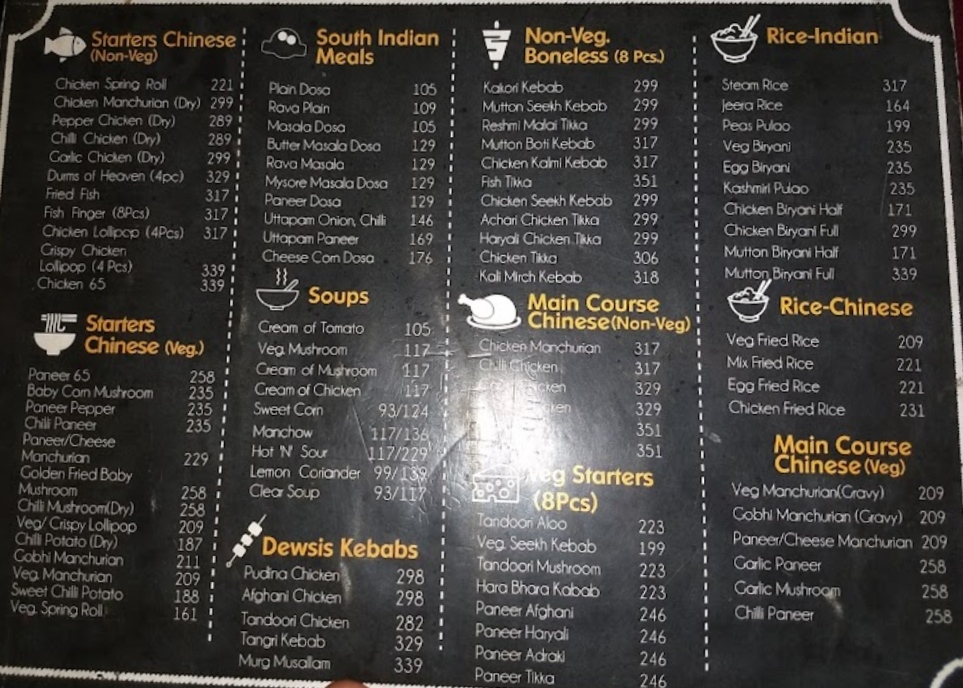 Starters Chinese
(Non-Veg)
Chicken Spring Roll 221
Chicken Manchurian (Dry) 299
Pepper Chicken (Dry) 289
Chilli Chicken (Dry) 289
Garlic Chicken (Dry) 299
Dums of Heaven (4pc) 329
Fried Fish 317
Fish Finger (8Pcs) 317
Chicken Lollipop (4Pcs) 317
Crispy Chicken
Lollipop (4 Pcs) 339
Chicken 65 339
Starters
Chinese (Veg.)
Paneer 65 258
Baby Corn Mushroom 235
Paneer Pepper 235
Chilli Paneer 235
Paneer/Cheese
Manchurian 229
Golden Fried Baby
Mushroom 258
Chilli Mushroom(Dry) 258
Veg/ Crispy Lollipop 209
Chilli Potato (Dry) 187
Gobhi Manchurian 211
Veg. Manchurian 209
Sweet Chilli Potato 188
Veg. Spring Roll 161
South Indian
Meals
Plain Dosa 105
Rava Plain 109
Masala Dosa 105
Butter Masala Dosa 129
Rava Masala 129
Mysore Masala Dosa 129
Paneer Dosa 129
Uttapam Onion, Chilli 146
Uttapam Paneer 169
Cheese Corn Dosa 176
Soups
Cream of Tomato 105
Veg. Mushroom 117
Cream of Mushroom 117
Cream of Chicken 117
Sweet Corn 93/124
Manchow 117/136
Hot 'N' Sour 117/229
Lemon Coriander 99/139
Clear Soup 93/117
Dewsis Kebabs
Pudina Chicken 298
Afghani Chicken 298
Tandoori Chicken 282
Tangri Kebab 329
Murg Musallam 339
Non-Veg.
Boneless (8 Pcs.)
Kakori Kebab 299
Mutton Seekh Kebab 299
Reshmi Malai Tikka 299
Mutton Boti Kebab 317
Chicken Kalmi Kebab 317
Fish Tikka 351
Chicken Seekh Kebab 299
Achari Chicken Tikka 299
Haryali Chicken Tikka 299
Chicken Tikka 306
Kali Mirch Kebab 318
Main Course
Chinese(Non-Veg)
Chicken Manchurian 317
Chilli Chicken 317
329
329
351
351
Veg Starters
(8Pcs)
Tandoori Aloo 223
Veg. Seekh Kebab 199
Tandoori Mushroom 223
Hara Bhara Kabab 223
Paneer Afghani 246
Paneer Haryali 246
Paneer Adraki 246
Paneer Tikka 246
Rice-Indian
Steam Rice 317
Jeera Rice 164
Peas Pulao 199
Veg Biryani 235
Egg Biryani 235
Kashmiri Pulao 235
Chicken Biryani Half 171
Chicken Biryani Full 299
Mutton Biryani Half 171
Mutton Biryani Full 339
Rice-Chinese
Veg Fried Rice 209
Mix Fried Rice 221
Egg Fried Rice 221
Chicken Fried Rice 231
Main Course
Chinese (Veg)
Veg Manchurian(Gravy) 209
Gobhi Manchurian (Gravy) 209
Paneer/Cheese Manchurian 209
Garlic Paneer 258
Garlic Mushroom 258
Chilli Paneer 258